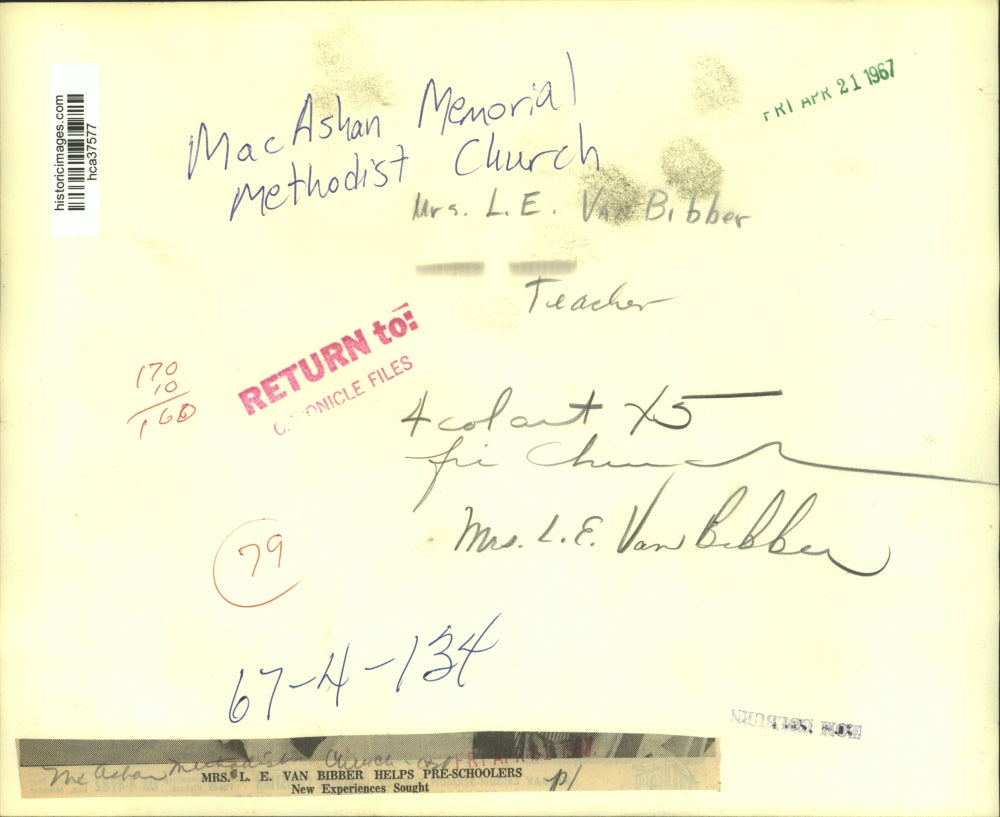 historicimages.com
hca37577
FRI APR 21 1967
MacAshan Memorial
Methodist Church
Mrs. L.E. Van Bibber
Teacher
RETURN to:
CHRONICLE FILES
170
10
160
4 col art X5
fri Church
Mrs. L.E. Van Bibber
79
67-4-134
McAshan Methodist Church
FRI APR
MRS. L. E. VAN BIBBER HELPS PRE-SCHOOLERS
New Experiences Sought
p1